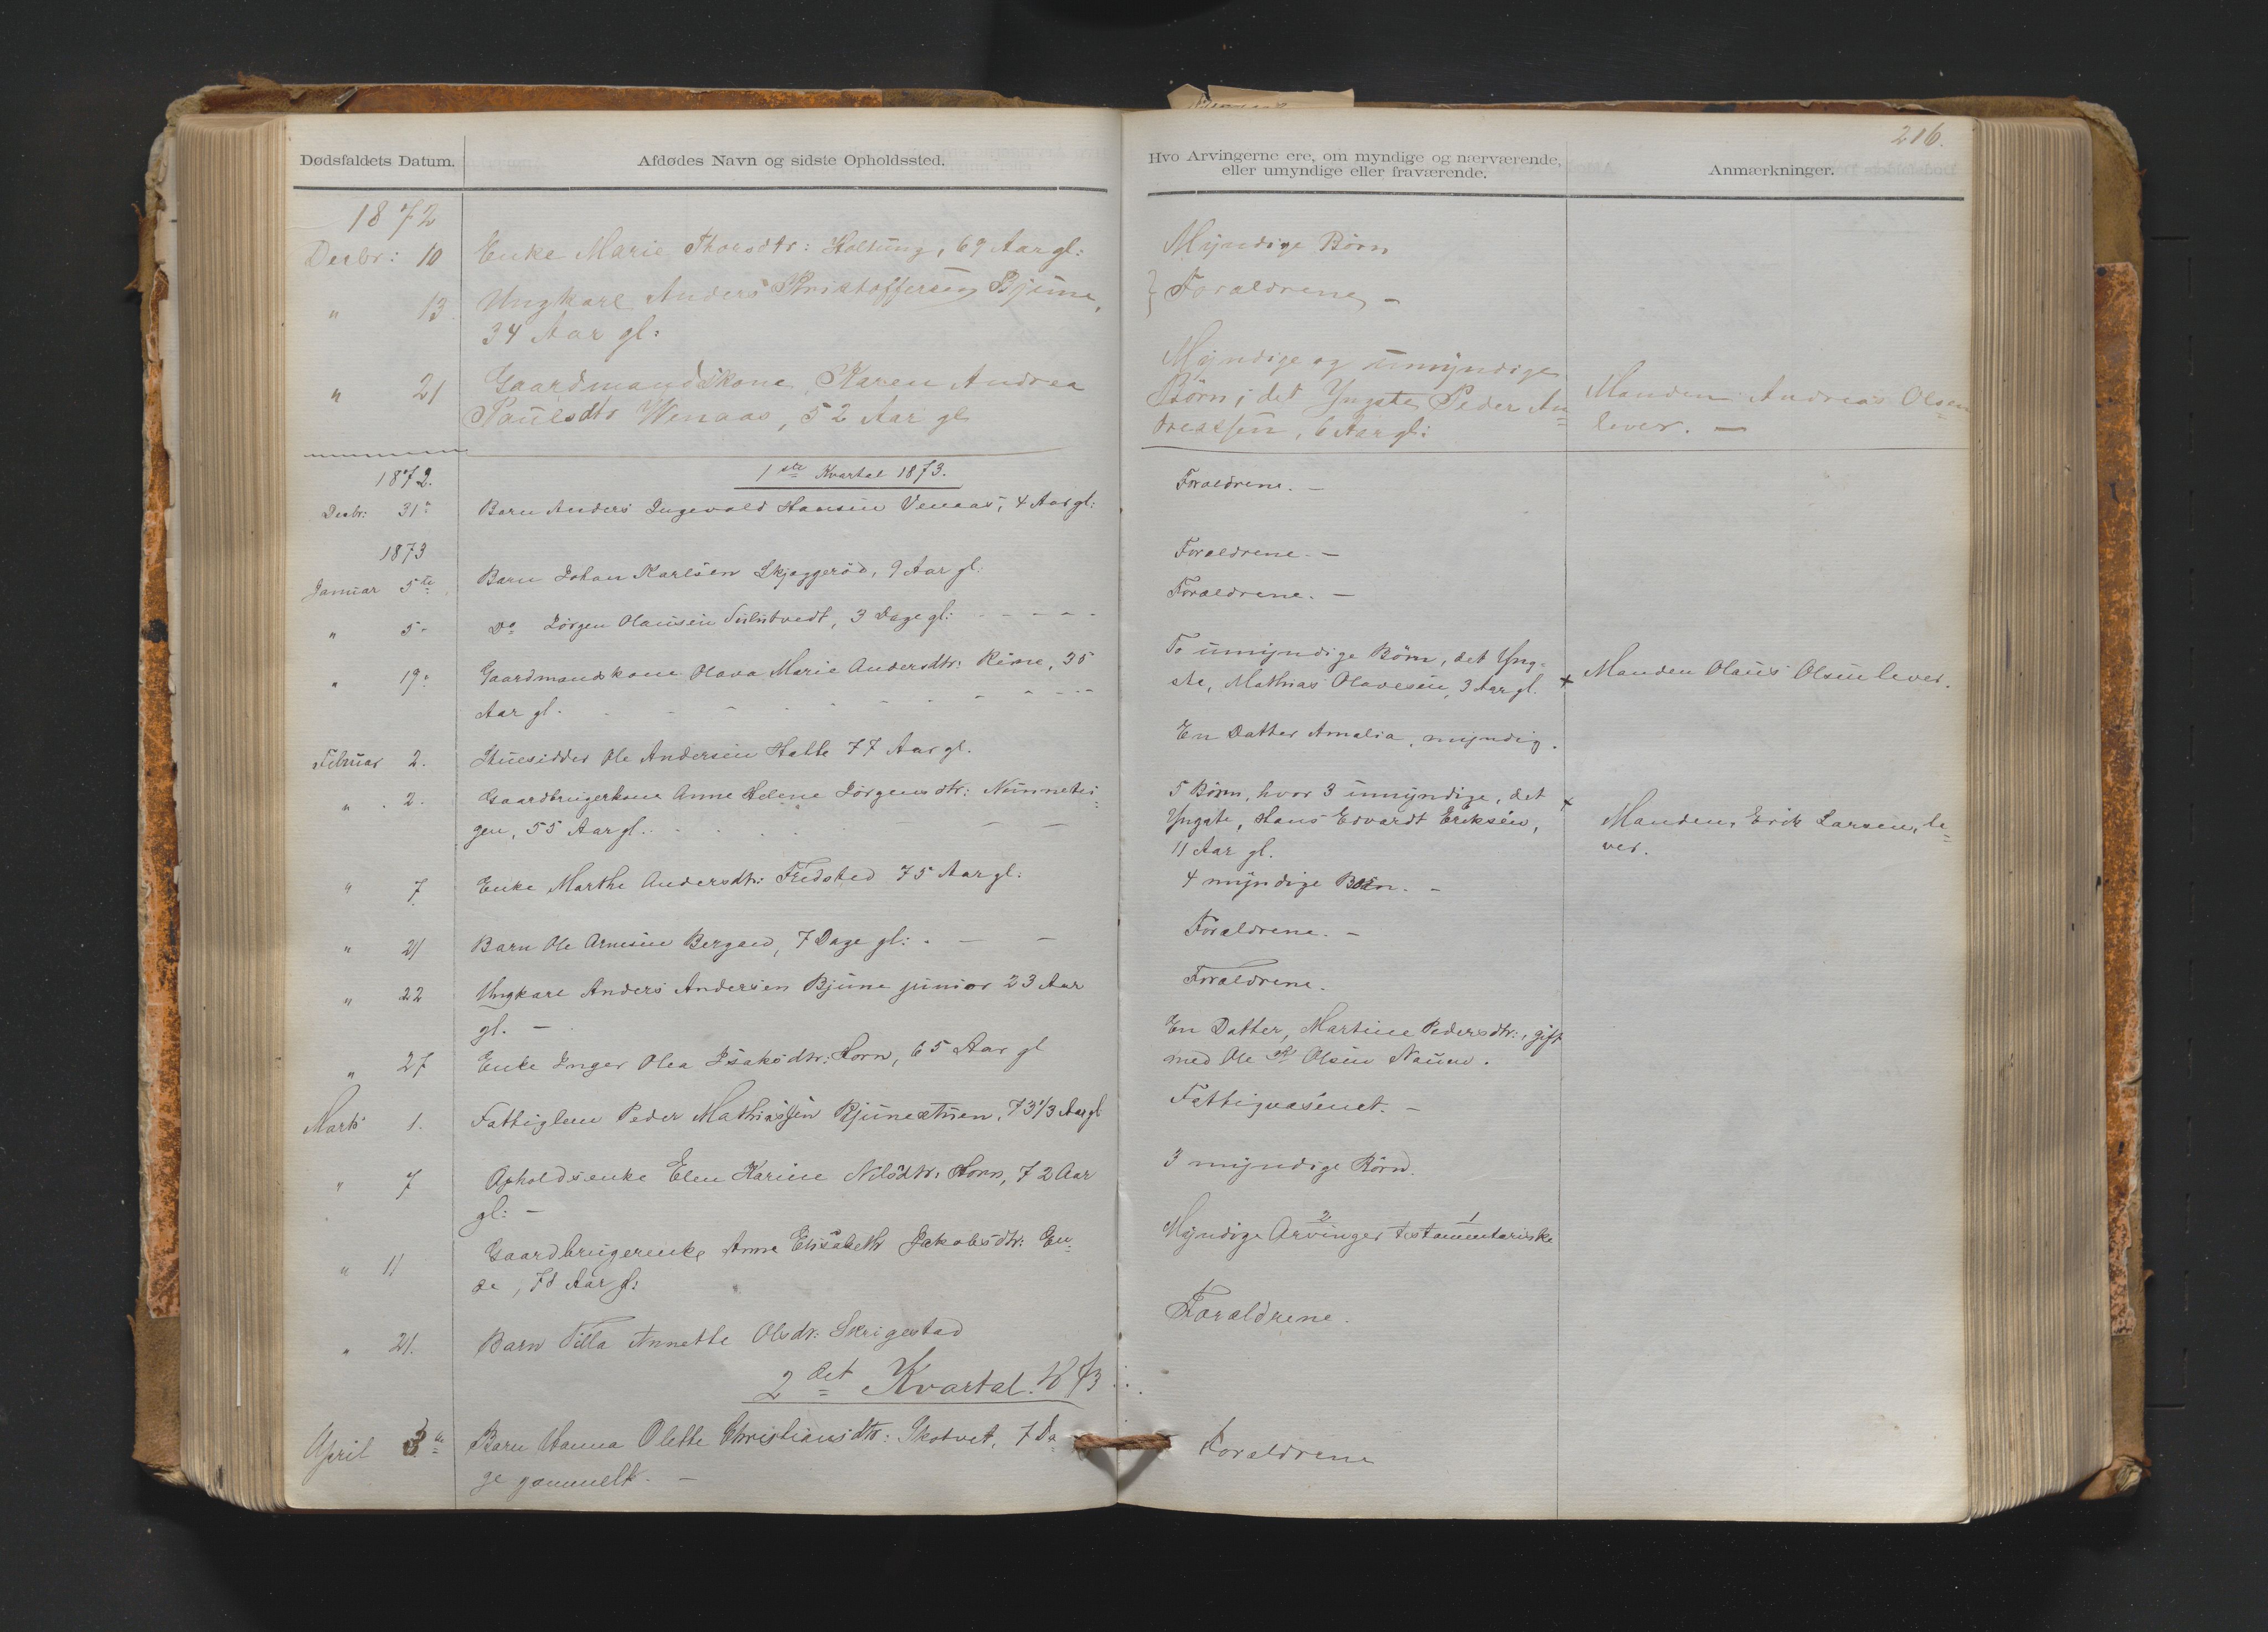 216.
Dødsfaldets Datum.
Afdødes Navn og sidste Opholdssted.
Hvo Arvingerne ere, om myndige og nærværende,
eller umyndige eller fraværende.
Anmærkninger.
1872
Decbr: 10 Enke Marie Thorsdtr: Holtung, 69 Aar gl: Myndige Børn
" 13. Ungkarl Anders Kristoffersen Bjune, } Forældrene –
34 Aar gl:
" 21 Gaardmandskone, Karen Andrea
Paulsdtr Wenaas, 52 Aar gl
Myndige og umyndige
Børn; det Yngste Peder An=
dreassen, 6 Aar gl:
Manden Andreas Olsen
lever. —
1ste Kvartal 1873.
1872.
Decbr: 31" Barn Anders Ingevald Hansen Venaas, 4 Aar gl: Forældrene. –
1873
Januar 5te Barn Johan Karlsen Skjæggerød, 9 Aar gl: Forældrene. –
" 5" Do Jørgen Olausen Sulutvedt, 3 Dage gl: Forældrene. –
" 19" Gaardmandskone Olava Marie Andersdtr: Rime, 35
Aar gl.
To umyndige Børn, det Yng-
ste, Mathias Olavesen, 3 Aar gl.
+ Manden Olaus Olsen lever.
Februar 2. Huusidder Ole Andersen Halte 77 Aar gl. En Datter Amalia, myndig.
" 2. Gaardbrugerkone Anne Helene Jørgensdtr: Nunnetei=
gen, 55 Aar gl.
5 Børn, hvor 3 umyndige, det
Yngste, Hans Edvardt Eriksen,
11 Aar gl.
+ Manden, Erik Larsen, le=
ver.
" 7. Enke Marthe Andersdtr: Fredsted 75 Aar gl: 4 myndige Børn. –
" 21 Barn Ole Arnesen Bergan, 7 Dage gl: Forældrene. –
" 22 Ungkarl Anders Andersen Bjune junior 23 Aar
gl. –
Forældrene.
" 27 Enke Inger Olea Isaksdtr: Horn, 65 Aar gl
En Datter, Martine Pedersdtr:, gift
med Ole K Olsen Nauen.
Marts 1. Fattiglem Peder Mathiassen Bjuneætuen, 73 1/3 Aar gl Fattigvæsenet. –
" 7 Opholdsenke Elen Karine Nilsdtr: Horn, 72 Aar
gl: –
3 myndige Børn.
" 11 Gaardbrugerenke Anne Elisabeth Jakobsdtr: En=
ge, 78 Aar gl:
2 1
Myndige Arvinger testamentariske
" 21. Barn Tilla Annette Olsdr: Skrigestad Forældrene.
2det Kvartal. 1873
April 3de Barn Hanna Olette Christiansdtr: Skotvet, 7 Da=
ge gammelt. –
Forældrene